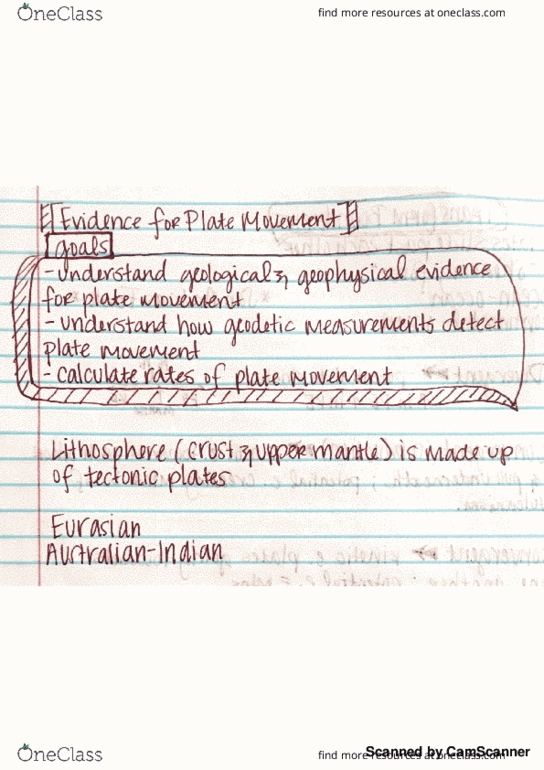 OneClass
find more resources at oneclass.com
Evidence for Plate Movement
goals
-understand geological & geophysical evidence
for plate movement
-understand how geodetic measurements detect
plate movement
- calculate rates of plate movement
Lithosphere (crust & upper mantle) is made up
of tectonic plates
Eurasian
Australian-Indian
OneClass
find more resources at oneclass.com
Scanned by CamScanner